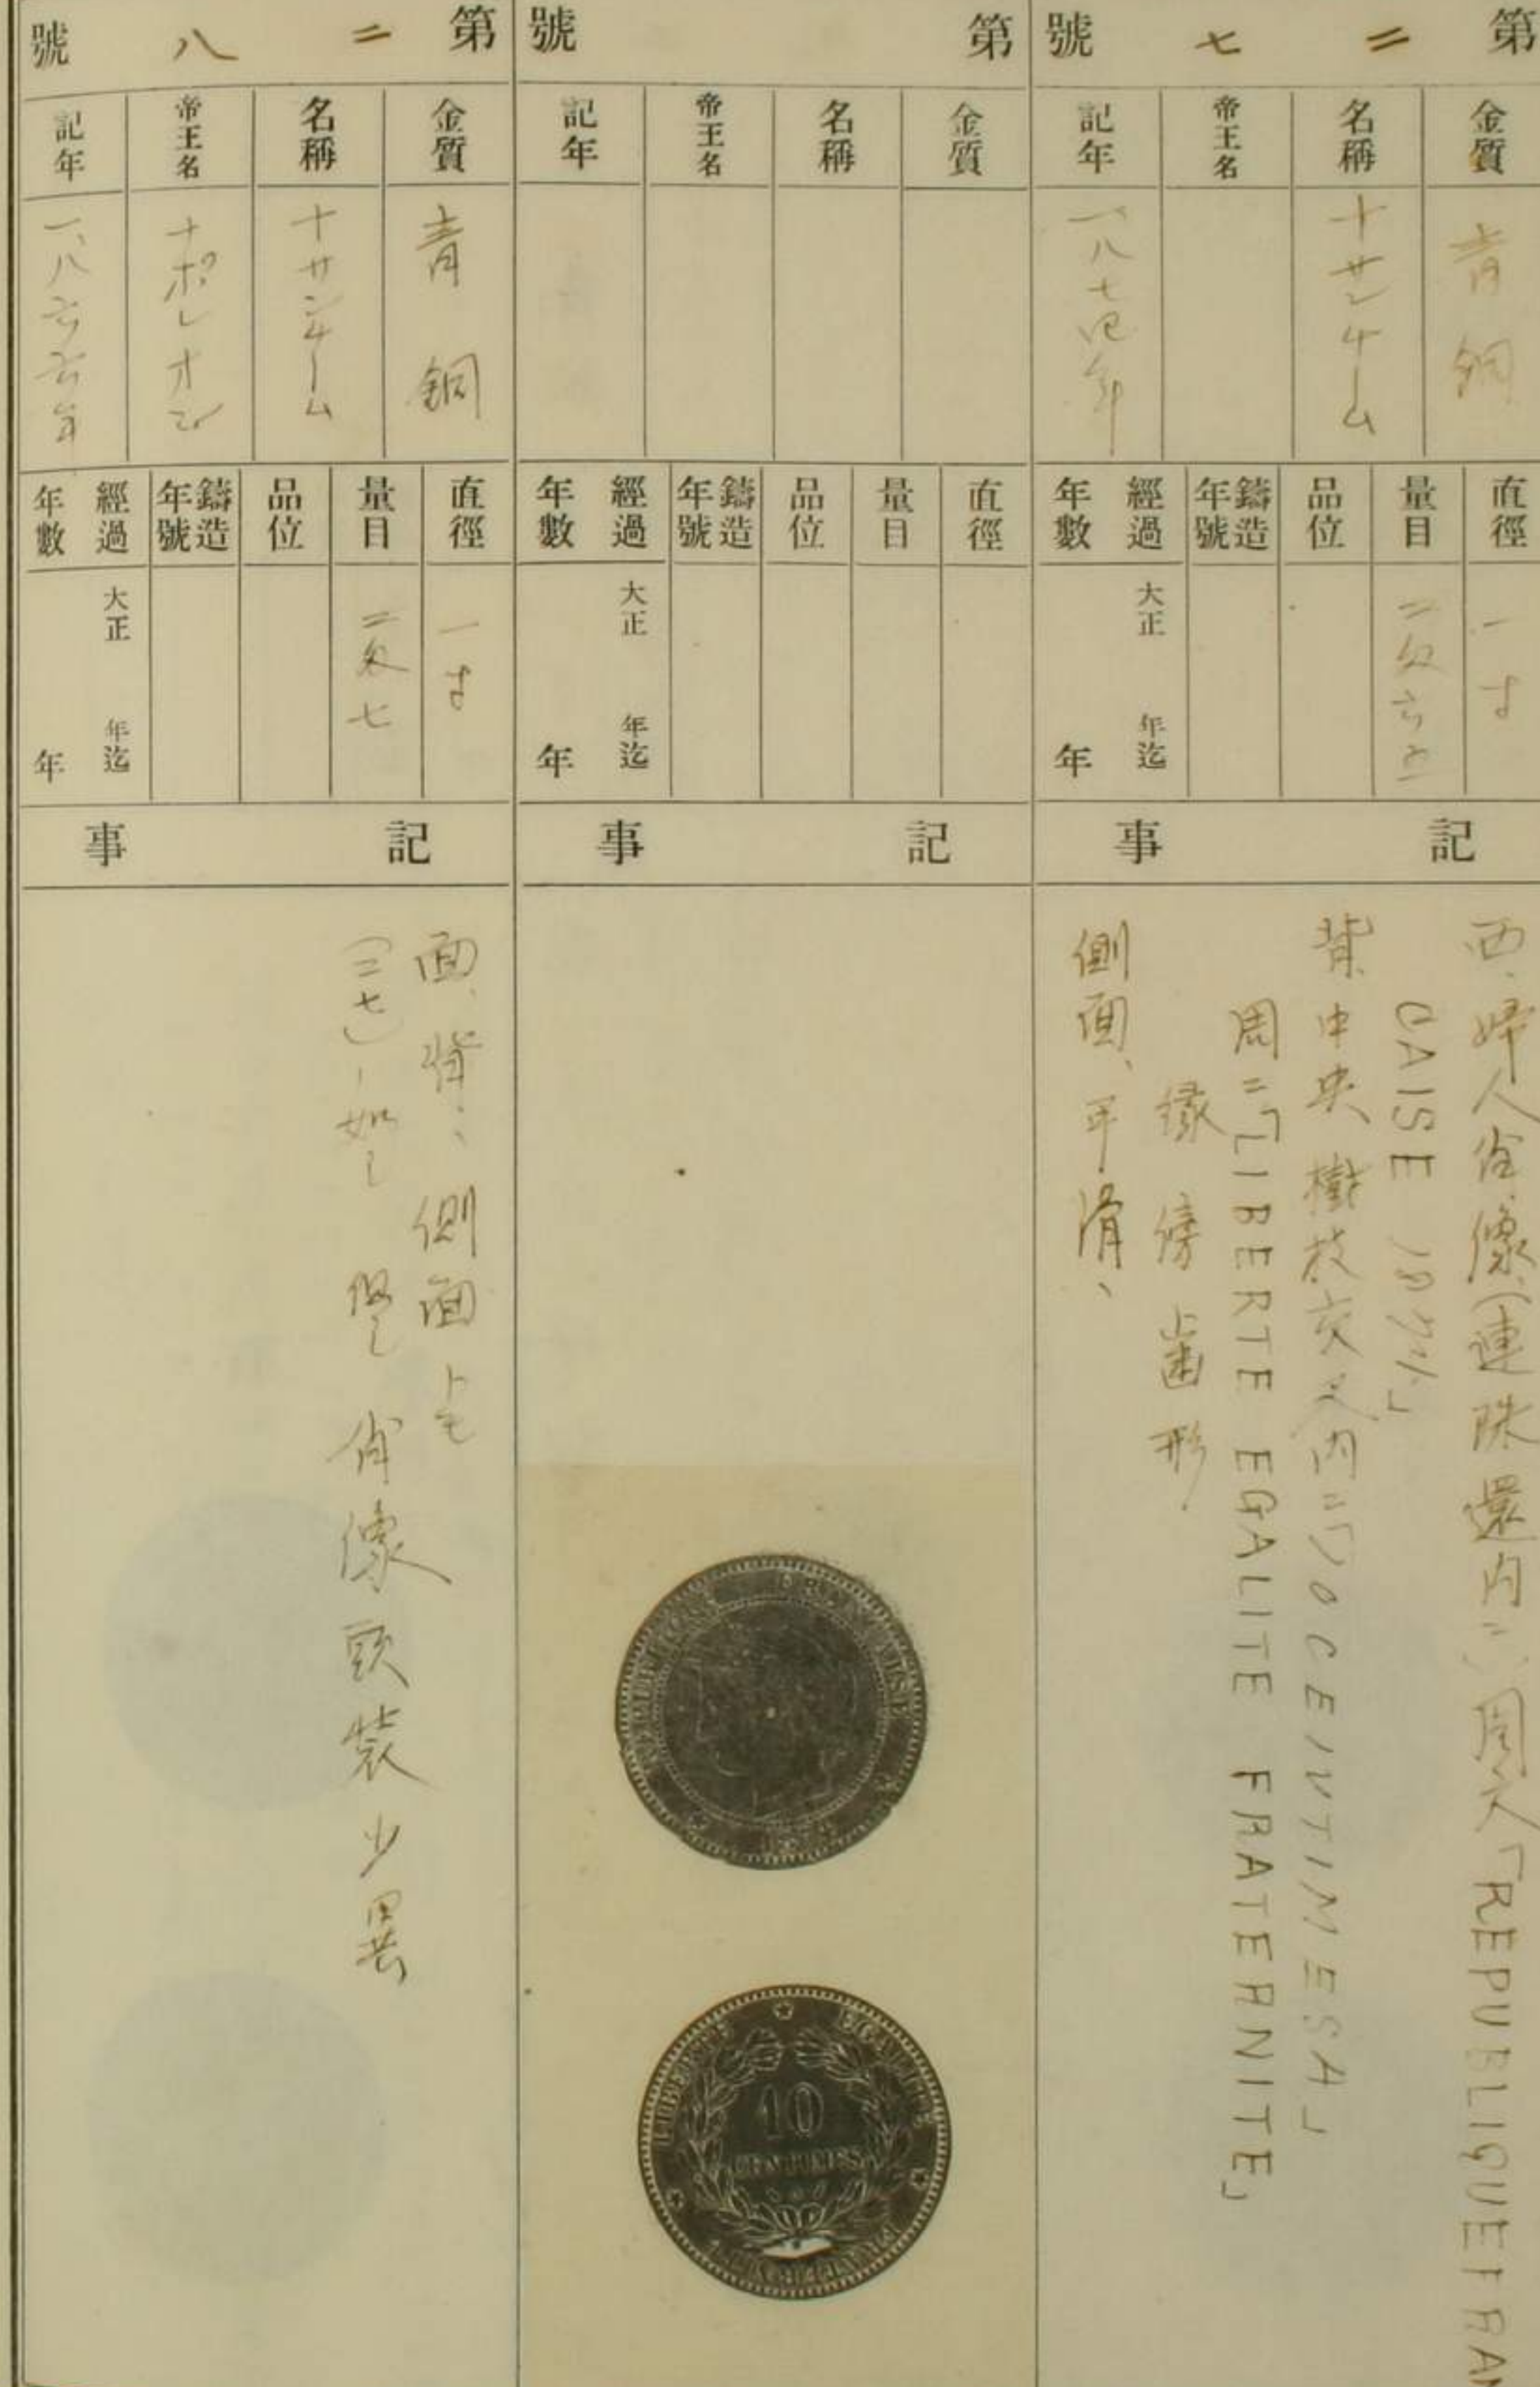 第二七號
金質
青銅
名稱
十サンチーム
帝王名
記年
一八七四年
直徑
一寸
量目
二匁六五
品位
鑄造年號
經過年數
大正 年迄
年
記事
面、婦人肖像(連珠還内ニ)周文「REPUBLIQUE FRAN
CAISE
背、中央樹枝交叉内ニ「10CENTIMESA」
周ニ「LIBERTE EGALITE FRATERNITE」
緣傍齒形、
側面、平滑、
第 號
金質
名稱
帝王名
記年
直徑
量目
品位
鑄造年號
經過年數
大正 年迄
年
記事
REPUBLIQUE FRANÇAISE
LIBERTE EGALITE FRATERNITE
10
CENTIMES
第二八號
金質
青銅
名稱
十サンチーム
帝王名
ナポレオン
記年
一、八六六年
直徑
一寸
量目
二匁七
品位
鑄造年號
經過年數
大正 年迄
年
記事
面、背、側面トモ
(二七)ノ如シ 但シ肖像頭裝少異